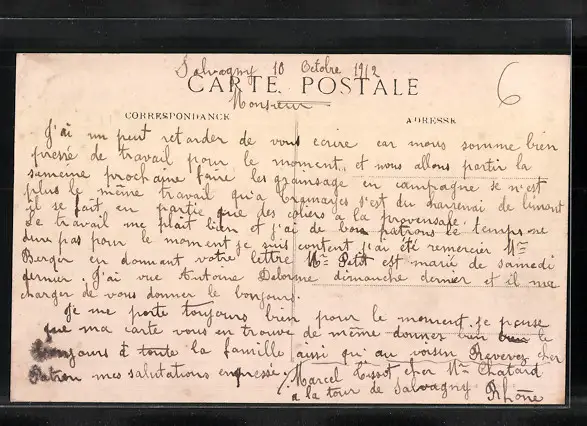 Salvagny 10 Octobre 1912
CARTE POSTALE
6
Monsieur
CORRESPONDANCE
ADRESSE
J'ai un peut retarder de vous ecrire car nous somme bien
pressé de travail pour le moment, et nous allons partir la
semeine prochaine faire les grainsage en campagne se n'est
plus le même travail qu'a s'est du
il se fait en partie que des coliers a la provensale.
Le travail me plait bien et j'ai de bon patrons le temps ne
dure pas pour le moment je suis content j'ai été remercier Mr
Berger en donnant votre lettre Mr Petit est marié de samedi
dernier J'ai vue Antoine Delorme dimanche dernier et il me
charger de vous donner le bonjours.
Je me porte toujours bien pour le moment. je pense
que ma carte vous en trouve de même donner bien le
bonjours à toute la famille ainsi qu'au voisin Recevez cher
Patron mes salutations enpressé. Marcel Tissot cher Mr Chatard
a la tour de Salvagny Rhône